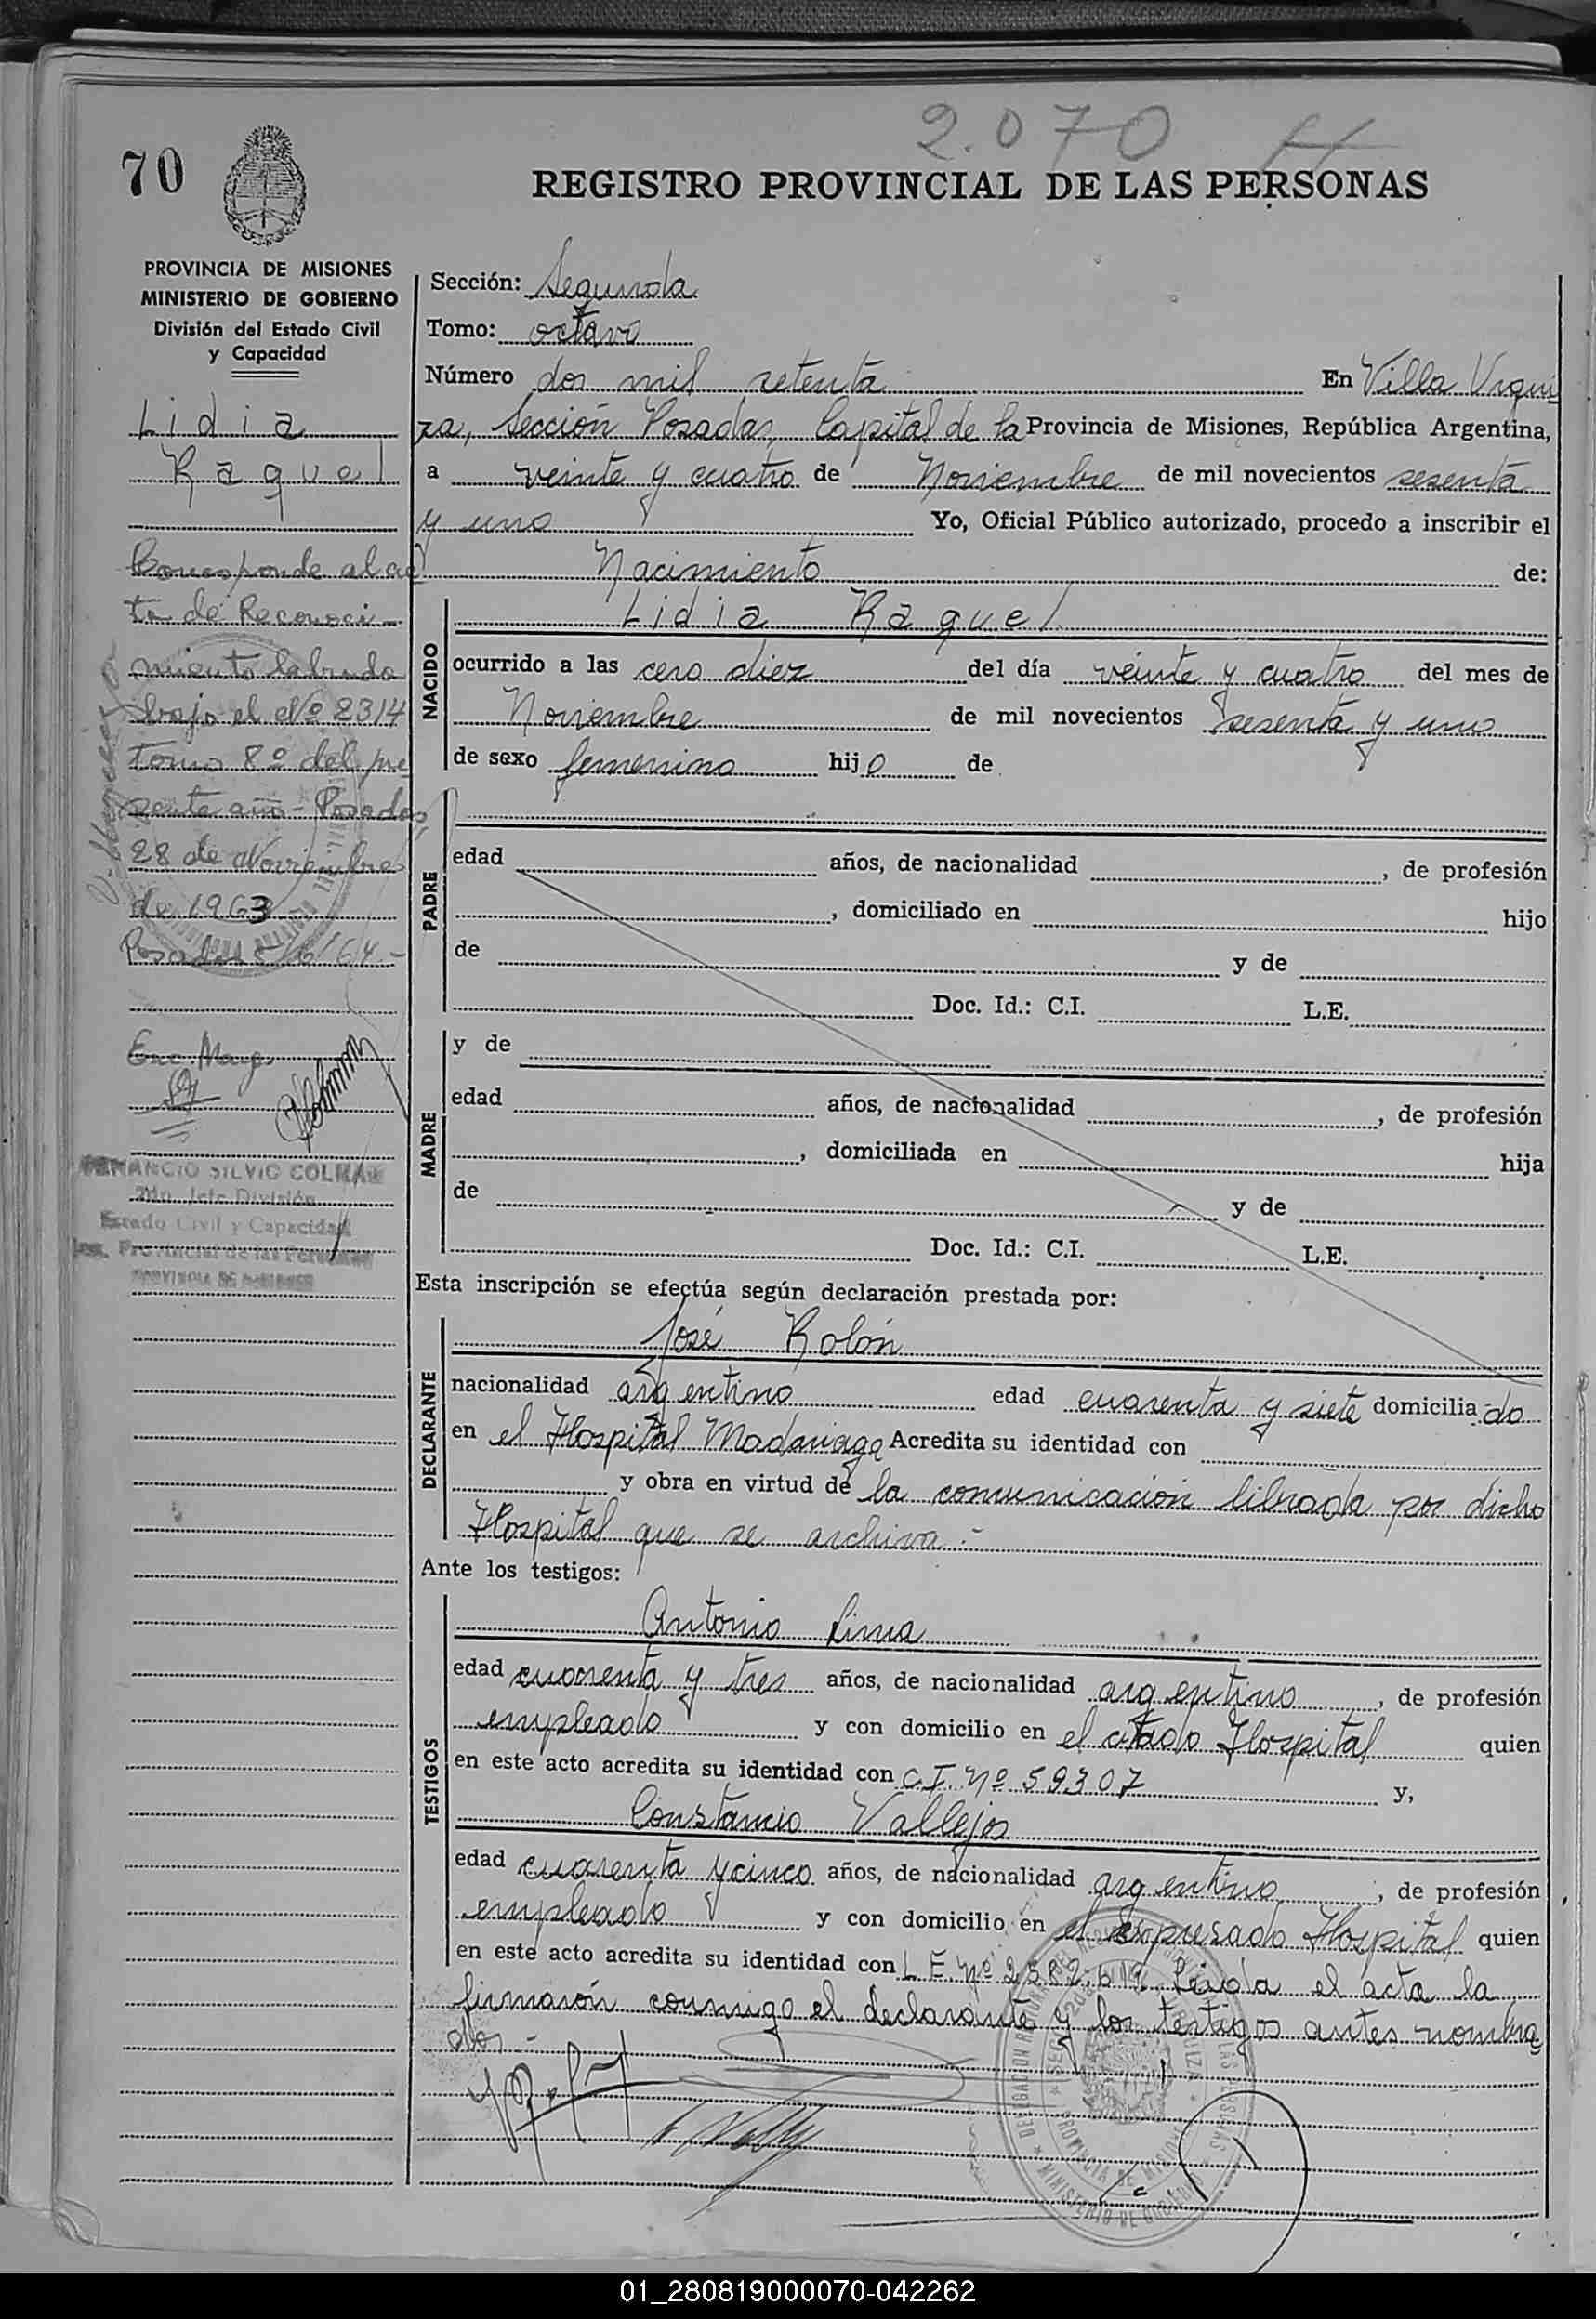 2.070
70
REGISTRO PROVINCIAL DE LAS PERSONAS
PROVINCIA DE MISIONES
MINISTERIO DE GOBIERNO
División del Estado Civil
y Capacidad
Lidia
Raquel
Corresponde al ac
ta de Reconoci-
miento labrado
bajo el Nº 2314
Tomo 8º del pre
sente año - Posadas
28 de Noviembre
de 1963
Posadas 5/6/64.-
Enc. Marg.
VENANCIO SILVIO COLMAN
2do. Jefe División
Estado Civil y Capacidad
Reg. Provincial de las Personas
PROVINCIA DE MISIONES
Sección: Segunda
Tomo: octavo
Número dos mil setenta En Villa Urqui
za, Sección Posadas, Capital de la Provincia de Misiones, República Argentina,
a veinte y cuatro de Noviembre de mil novecientos sesenta
y uno Yo, Oficial Público autorizado, procedo a inscribir el
Nacimiento de:
NACIDO
Lidia Raquel
ocurrido a las cero diez del día veinte y cuatro del mes de
Noviembre de mil novecientos sesenta y uno
de sexo femenino hijo de
PADRE
edad años, de nacionalidad , de profesión
, domiciliado en hijo
de y de
Doc. Id.: C.I. L.E.
MADRE
y de
edad años, de nacionalidad , de profesión
, domiciliada en hija
de y de
Doc. Id.: C.I. L.E.
Esta inscripción se efectúa según declaración prestada por:
DECLARANTE
José Rolón
nacionalidad argentino edad cuarenta y siete domiciliado
en el Hospital Madariaga Acredita su identidad con
y obra en virtud de la comunicación librada por dicho
Hospital que se archiva.-
Ante los testigos:
TESTIGOS
Antonio Lima
edad cuarenta y tres años, de nacionalidad argentino , de profesión
empleado y con domicilio en el citado Hospital quien
en este acto acredita su identidad con C.I. Nº 59307 y,
Constancio Vallejos
edad cuarenta y cinco años, de nacionalidad argentino , de profesión
empleado y con domicilio en el expresado Hospital quien
en este acto acredita su identidad con L.E. Nº Leída el acta la
firmarón conmigo el declarante y los testigos antes nombra
dos.-
01_280819000070-042262